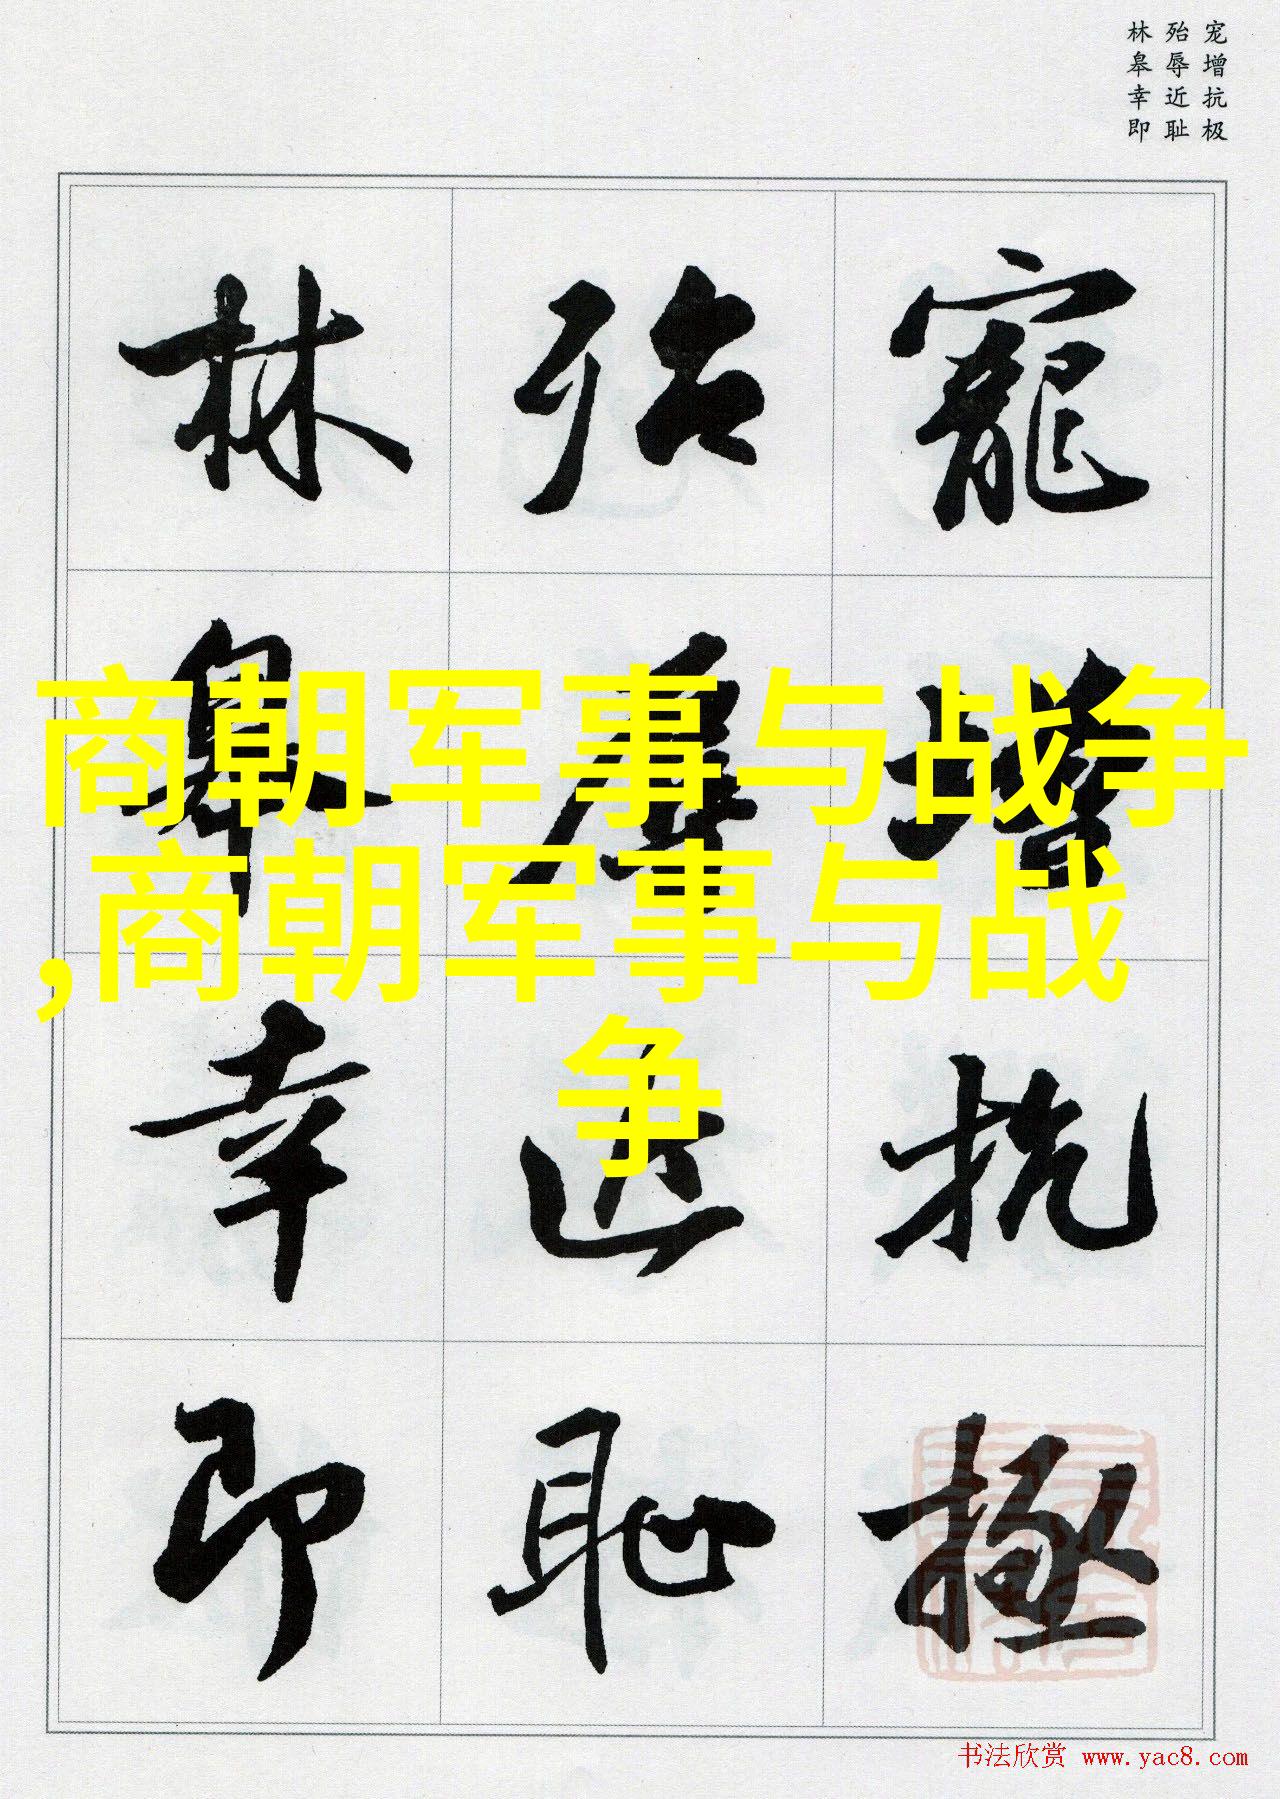 宠增抗极
殆辱近耻
林皋幸即
寵增抗極
殆辱近恥
林皋幸即
商朝军事与战争
,商朝军事与战
争
书法欣赏 www.yac8.com